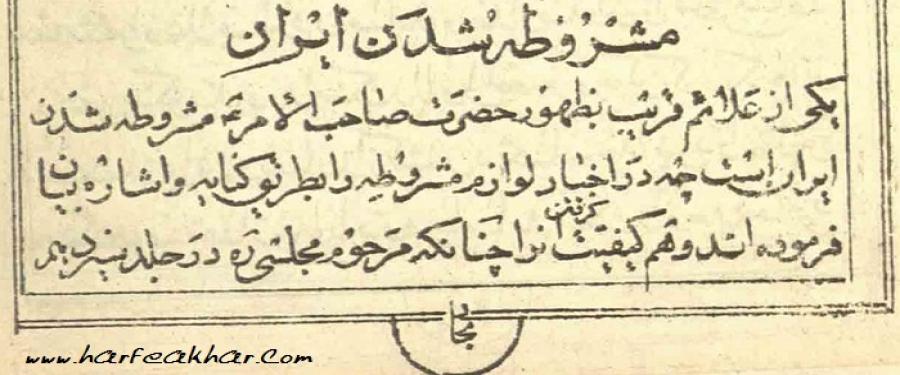 مشروطه شدن ایران
یکی از علائم قریب بظهور حضرت صاحب الامر تم مشروطه شدن
ایران است چه در اخبار لوازم مشروطه را بطریق کنایه و اشاره بیان
فرموده اند و هم کیفیت گرفتن انرا چنانکه مرحوم مجلسی ره در جلد سیزدهم
بحار
www.harfeakhar.com